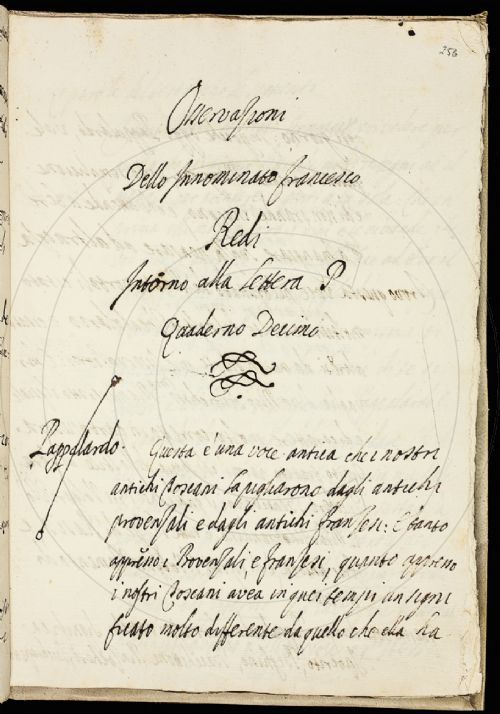 256
Osservazioni
Dello Innominato Francesco
Redi
Intorno alla Lettera P
Quaderno Decimo
Pappalardo. Questa è una voce antica che i nostri
antichi Toscani la pigliarono dagli antichi
provenzali e dagli antichi franzesi: E tanto
appresso i Provenzali, e franzesi, quanto appresso
i nostri Toscani avea in quei tempi un signi
ficato molto differente da quello che ella ha